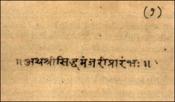 (१)
॥ अथ श्रीसिद्धमंत्रीप्रारंभः ॥